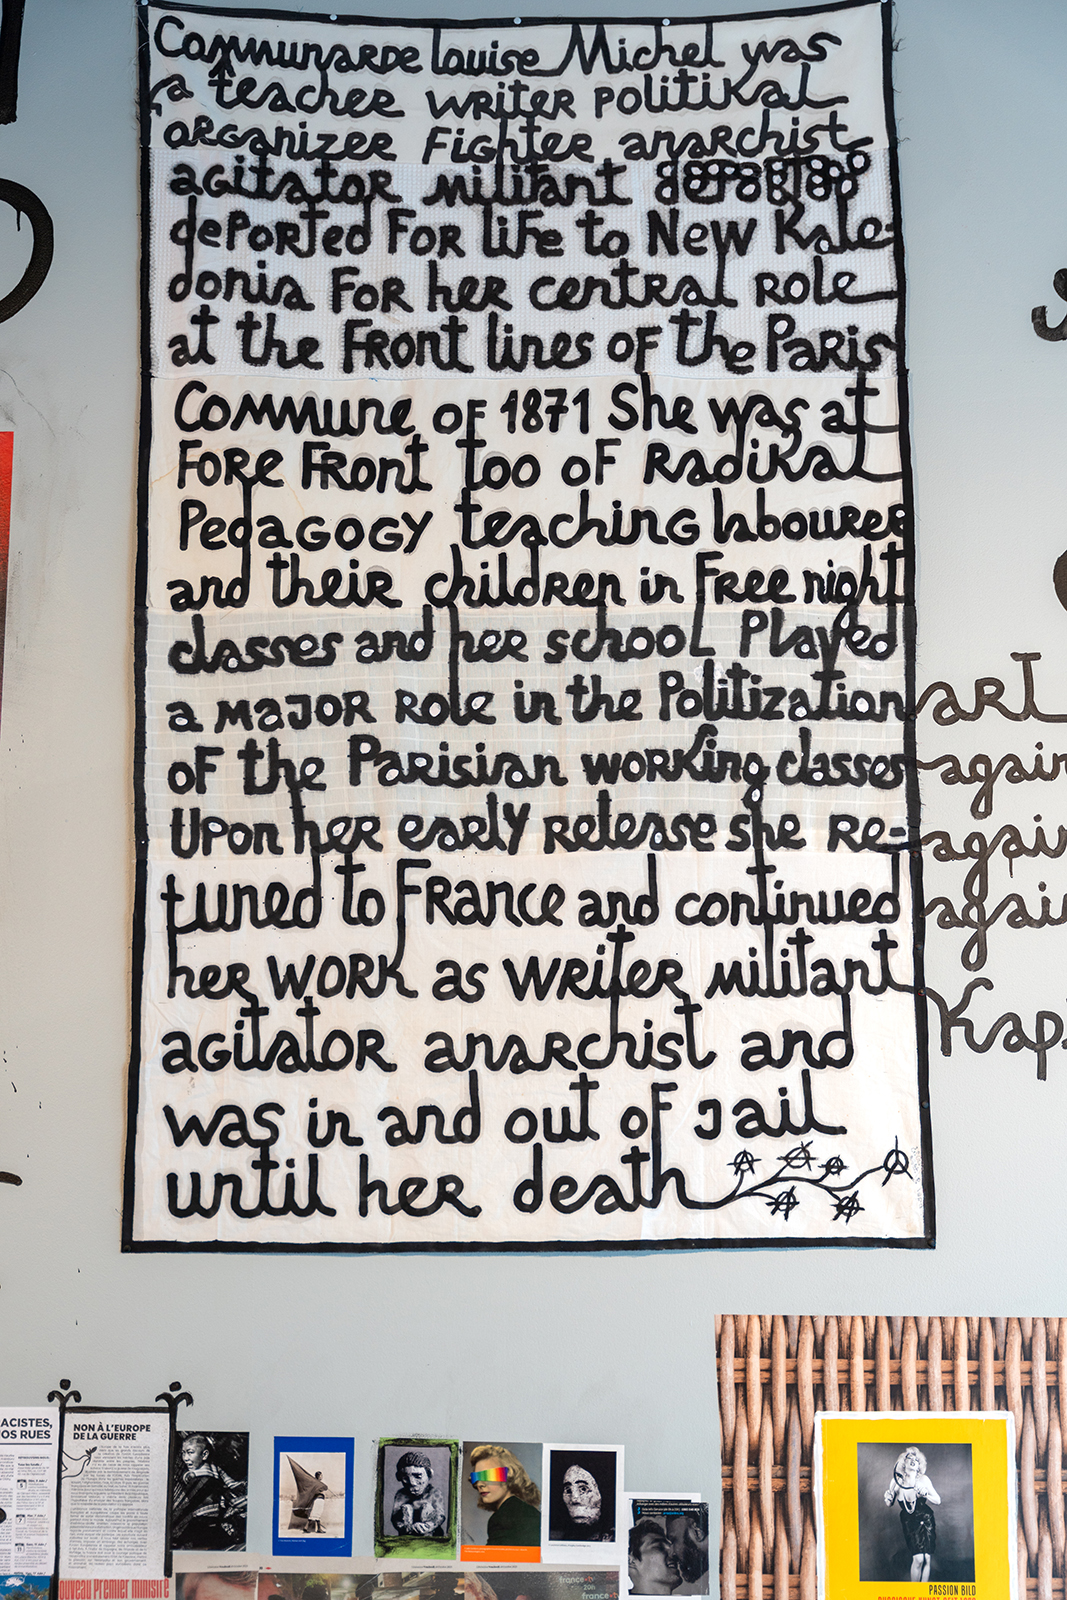 Communarde Louise Michel was
a teacher writer politikal
organizer Fighter anarchist
agitator militant
deported For life to New Kale-
donia For her central role
at the Front lines of the Paris
Commune of 1871 She was at
Fore Front too of Radikal
Pedagogy teaching labourer
and their children in Free night
classes and her school Played
a major role in the Politization
of the Parisian working classes
Upon her early release she re-
tuned to France and continued
her work as writer militant
agitator anarchist and
was in and out of Jail
until her death
art
again
again
again
Kap
ACISTES,
OS RUES
NON À L'EUROPE
DE LA GUERRE
OUVEAU PREMIER MINISTRE
france•tv
20h
france•tv
PASSION BILD
RUSSISCHE KUNST SEIT 1970